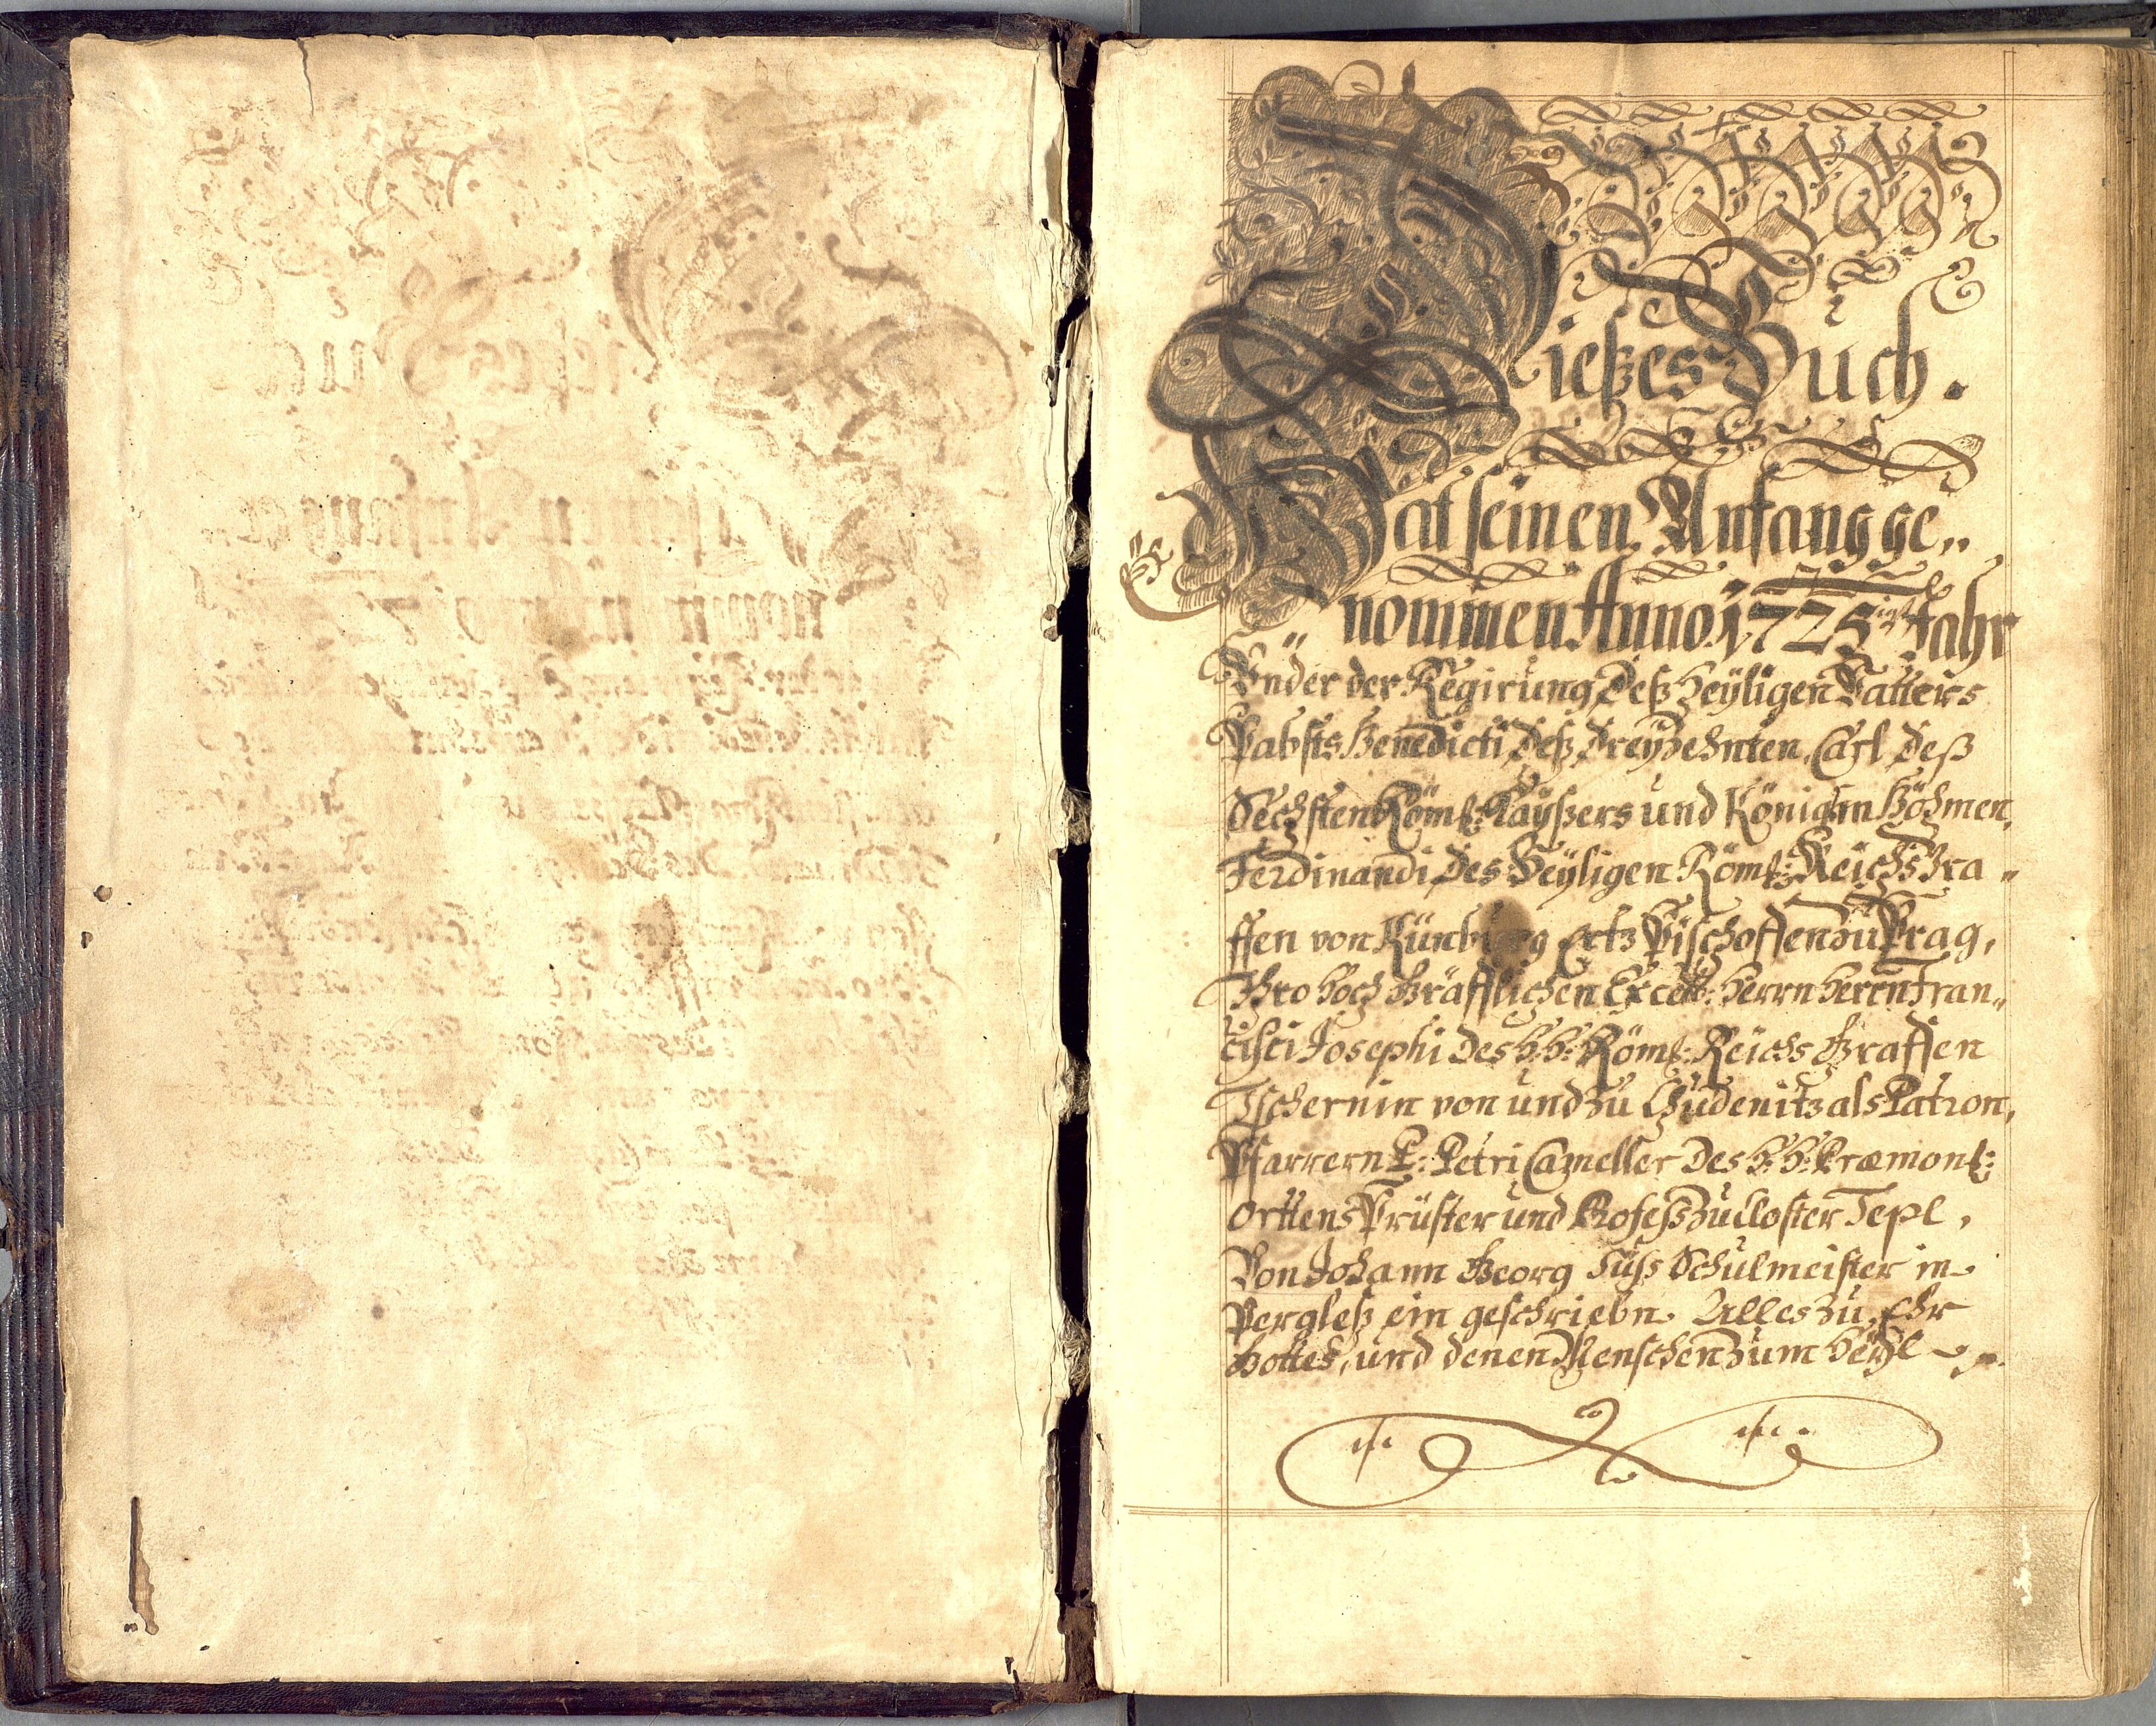 Dießes Buch.
Hat seinen Anfang ge„
nommen Anno. 1725ist Jahr
Vnder der Regirung Deß Heyligen Vatters
Pabsts Benedicti Deß Dreyzehnten, Carl Deß
Sechsten Röms: Kayßers und König in Böhmen,
Ferdinandi Des Heyligen Röms: Reichs Gra„
ffen von Künburg Ertz Pischoffen zu Prag,
Ihro Hoch Gräfflichen Excell: Herrn Herrn Fran„
cisci Josephi Des H: H: Röms: Reichs Graffen
Tschernin von und zu Chudenitz als Patron,
Pfarrern P: Petri Cameller Des H: H: Præmons:
Orttens Prüster und Profess zu Closter Tepl,
Von Johann Georg Süss Schulmeister in
Pergleß ein geschriebn. Alles zu Ehr
Gottes, und denen Menschen zum Heyl